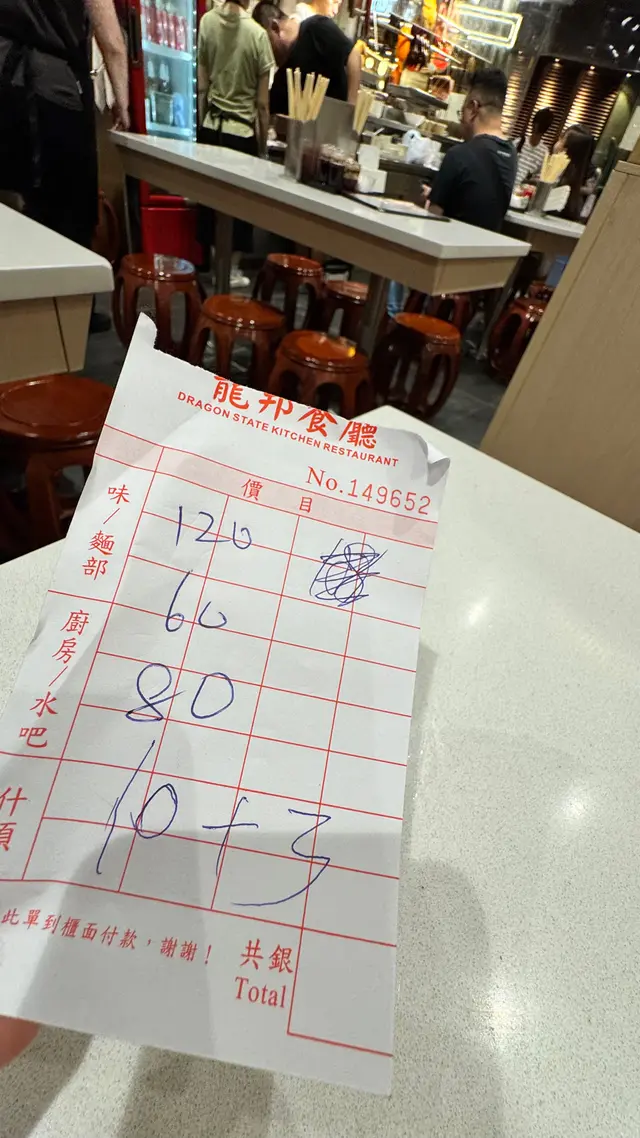 龍邦餐廳
DRAGON STATE KITCHEN RESTAURANT
No.149652
價目
味/麵部
120
60
廚房/水吧
80
什項
10+3
此單到櫃面付款，謝謝！
共銀
Total